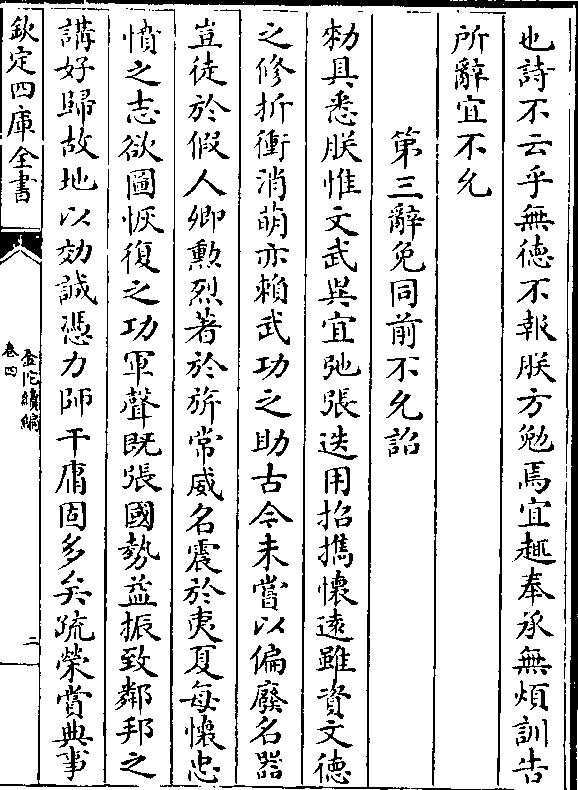 也詩不云乎無徳不報朕方勉焉宜趣奉承無煩訓告
所辭宜不允
第三辭免同前不允詔
勑具悉朕惟文武異宜弛張迭用招攜懷遠雖資文德
之修折衝消萌亦賴武功之助古今未嘗以偏廢名器
豈徒於假人卿勲烈著於旂常威名震於夷夏每懷忠
憤之志欲圖恢復之功軍聲既張國勢益振致鄰邦之
講好歸故地以效誠憑力師干庸固多矣疏榮賞典事
欽定四庫全書
金佗續編
卷四
二